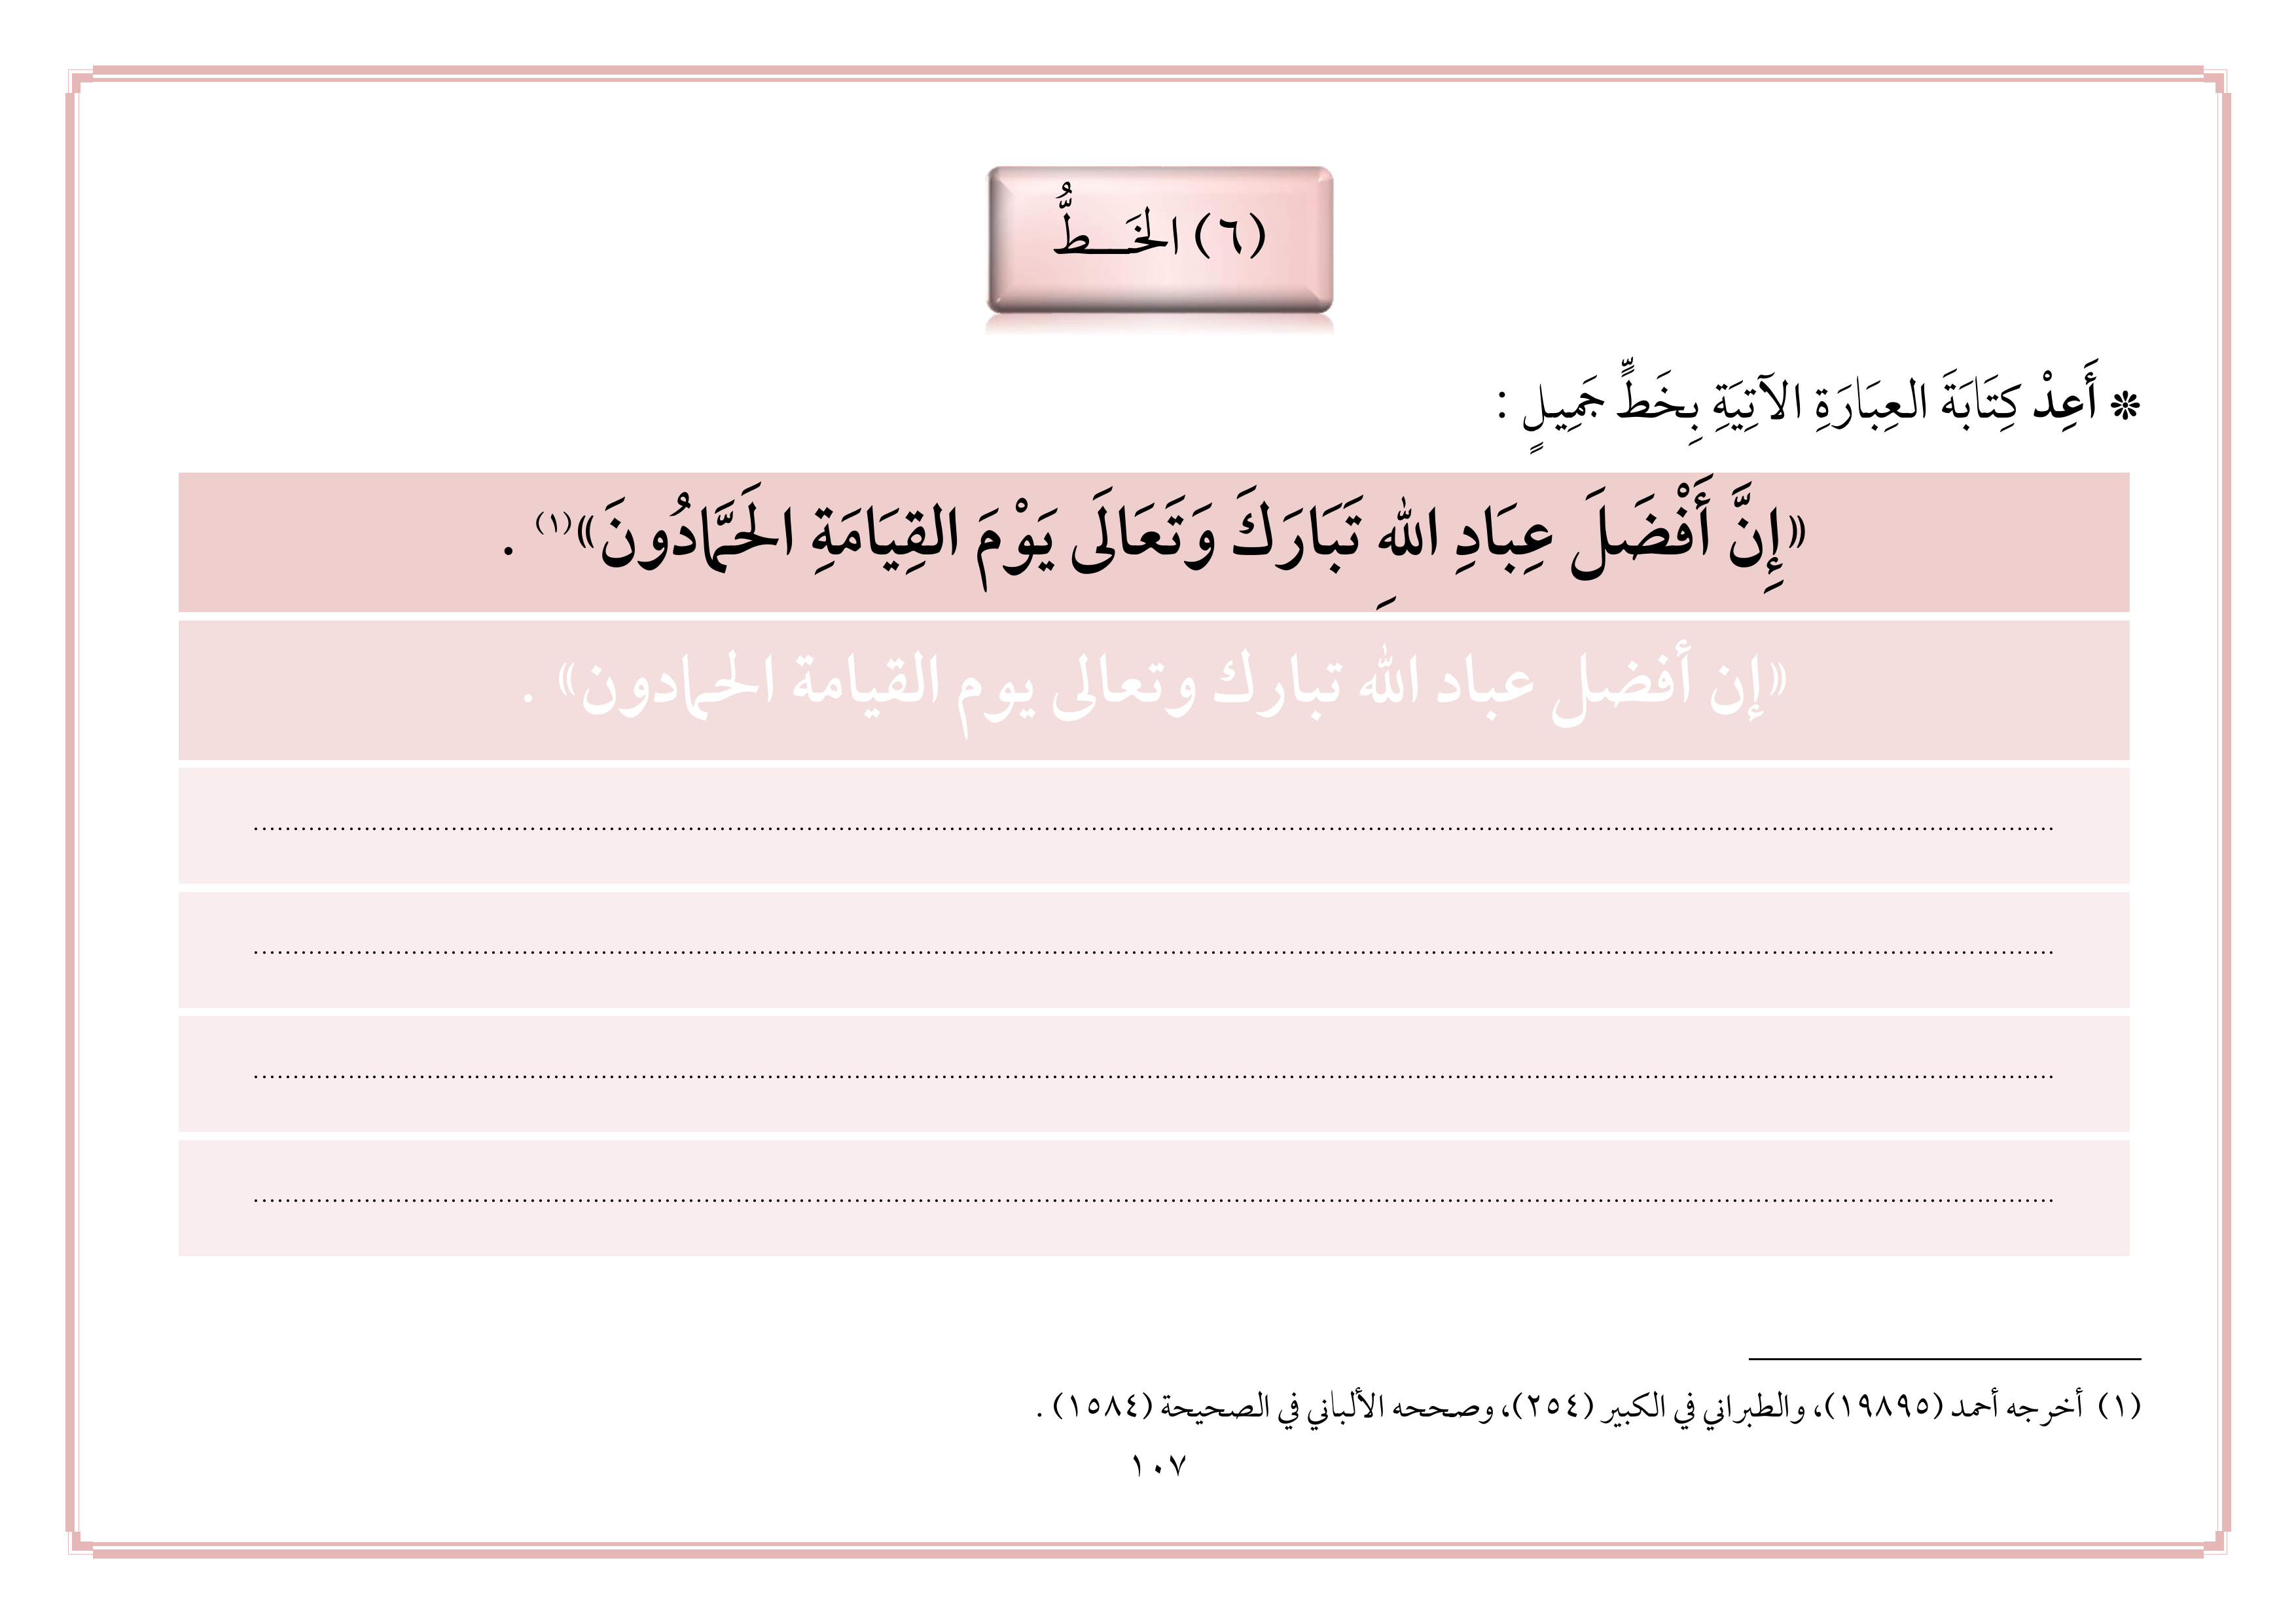 (٦) الخَـــطُّ
❊ أَعِدْ كِتَابَةَ العِبَارَةِ الآتِيَةِ بِخَطٍّ جَمِيلٍ :
«إِنَّ أَفْضَلَ عِبَادِ اللهِ تَبَارَكَ وَتَعَالَى يَوْمَ القِيَامَةِ الحَمَّادُونَ»(١) .
«إن أفضل عباد الله تبارك وتعالى يوم القيامة الحمادون» .
(١) أخرجه أحمد (١٩٨٩٥)، والطبراني في الكبير (٢٥٤)، وصححه الألباني في الصحيحة (١٥٨٤) .
١٠٧